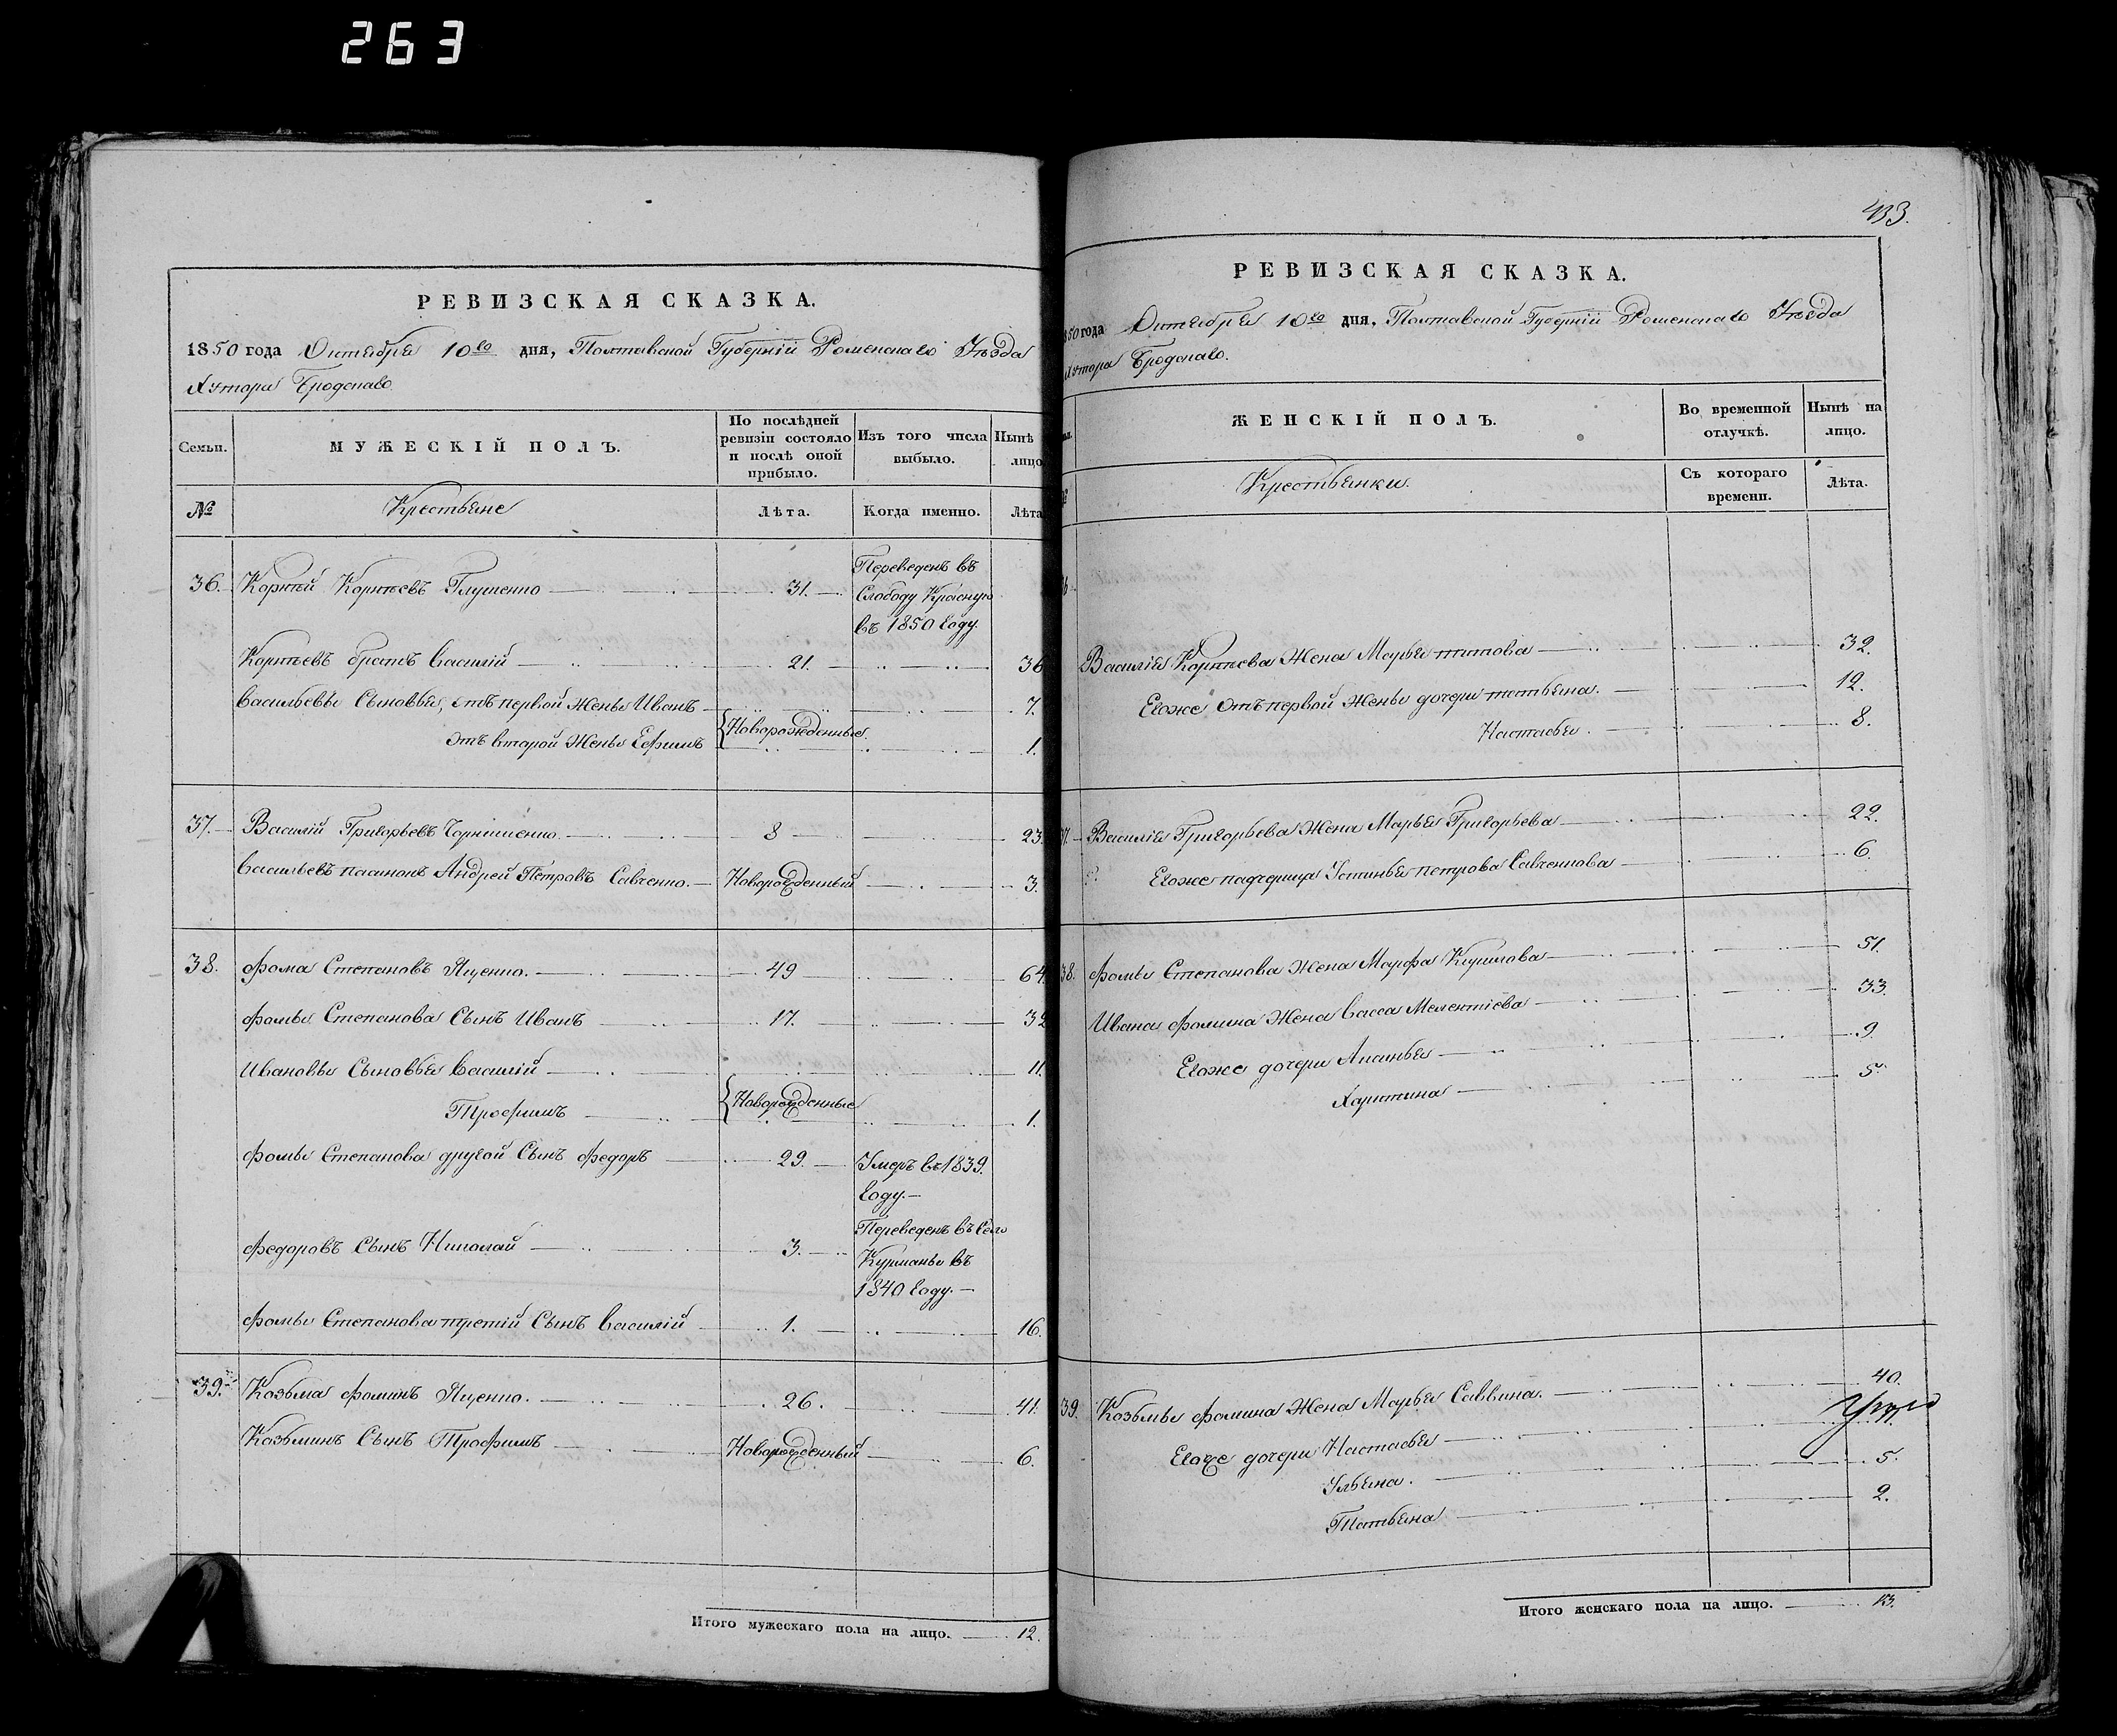 263
РЕВИЗСКАЯ СКАЗКА.
1850 года Октября 10го дня, Полтавской Губерніи Роменскаго Уѣзда
Хутора Бродскаго
Семьи.
МУЖЕСКІЙ ПОЛЪ.
По послѣдней ревизіи состояло и послѣ оной прибыло.
Изъ того числа выбыло.
Нынѣ лицо
№
Крестьяне
Лѣта.
Когда именно.
Лѣта
36. Корнѣй Корнѣевъ Глущенко 31. Переведенъ въ
Слободу Красную
въ 1850 Году.
Корнѣевъ братъ Василій 21. 36
Васильевы Сыновья, отъ первой Жены Иванъ 7.
Новорожденные.
отъ второй Жены Ефимъ 1.
37. Василій Григорьевъ 8 23.
Васильевъ пасынокъ Андрей Петровъ Савченко. Новорожденный 3.
38. Фома Степановъ Яценко. 49 64.
Фомы Степанова Сынъ Иванъ 17. 32
Ивановы Сыновья Василій 11.
Новорожденные
Трофимъ 1.
Фомы Степанова другой Сынъ Федоръ 29. Умеръ въ 1839.
Году.
Федоровъ Сынъ Николай 3. Переведенъ въ Село
Курманы въ
1840 Году.
Фомы Степанова третій Сынъ Василій 1. 16.
39. Козьма Фоминъ Яценко. 26. 41.
Козьминъ Сынъ Трофимъ Новорожденный 6.
Итого мужескаго пола на лицо. 12.
433.
РЕВИЗСКАЯ СКАЗКА.
850 года Октября 10го дня, Полтавской Губерніи Роменскаго Уѣзда
Хутора Бродскаго.
ЖЕНСКІЙ ПОЛЪ.
Во временной отлучкѣ.
Нынѣ на лицо.
Крестьянки.
Съ котораго времени.
Лѣта.
Василія Корнѣева Жена Марья Титова 32.
Егоже Отъ первой Жены дочери Татьяна. 12.
Настасья. 8.
37. Василія Григорьева Жена Марья Григорьева 22.
Егоже падчерица Устинья Петрова Савченкова 6.
38. Фомы Степанова Жена Марфа Кирилова 51.
Ивана Фомина Жена Васса Мелентіева 33.
Егоже дочери Ананья 9.
Харитина 5.
39. Козьмы Фомина Жена Марья Саввина. 40.
Егоже дочери Настасья
Ульяна. 5.
Татьяна 2.
Итого женскаго пола на лицо. 13.